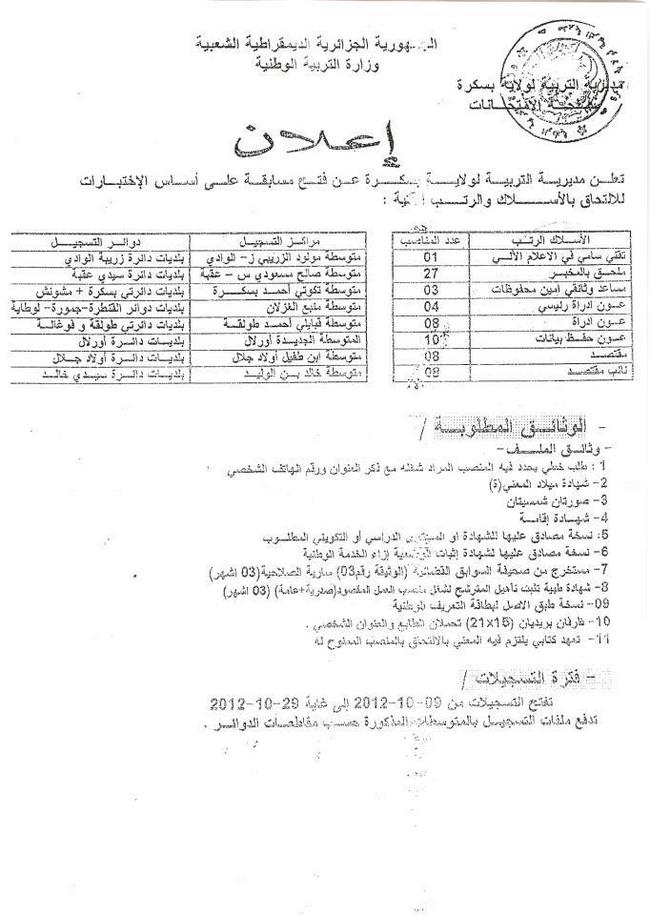 الجمهورية الجزائرية الديمقراطية الشعبية
وزارة التربية الوطنية
مديرية التربية لولاية بسكرة
مصلحة الامتحانات
إعلان
تعلن مديرية التربية لولاية بسكرة عن فتح مسابقة على أساس الإختبارات
للالتحاق بالأسلاك والرتب الآتية :
الأسلاك الرتب عدد المناصب
تقني سامي في الاعلام الآلي 01
ملحق بالمخبر 27
مساعد وثائقي أمين محفوظات 03
عون ادراة رئيسي 04
عون ادراة 08
عون حفظ بيانات 10
مقتصد 08
نائب مقتصد 08
مراكز التسجيل دوائر التسجيل
متوسطة مولود الزريبي ز- الوادي بلديات دائرة زريبة الوادي
متوسطة صالح مسعودي س - عقبة بلديات دائرة سيدي عقبة
متوسطة تكوتي أحمد بسكرة بلديات دائرتي بسكرة + مشونش
متوسطة منبع الغزلان بلديات دوائر القنطرة-جمورة- لوطاية
متوسطة قبايلي أحمد طولقة بلديات دائرتي طولقة و فوغالة
المتوسطة الجديدة أورلال بلديات دائرة أورلال
متوسطة ابن طفيل أولاد جلال بلديات دائرة أولاد جلال
متوسطة خالد بن الوليد بلديات دائرة سيدي خالد
- الوثائق المطلوبة /
- وثائق الملف-
1 : طلب خطي يحدد فيه المنصب المراد شغله مع ذكر العنوان ورقم الهاتف الشخصي
2- شهادة ميلاد المعني(ة)
3- صورتان شمسيتان
4- شهادة إقامة
5: نسخة مصادق عليها للشهادة او المستوى الدراسي أو التكويني المطلوب
6- نسخة مصادق عليها لشهادة إثبات الوضعية إزاء الخدمة الوطنية
7- مستخرج من صحيفة السوابق القضائية (الوثيقة رقم03) سارية الصلاحية(03 اشهر)
8- شهادة طبية تثبت تأهيل المترشح لشغل منصب العمل المقصود(صدرية+عامة) (03 اشهر)
09- نسخة طبق الاصل لبطاقة التعريف الوطنية
10- ظرفان بريديان (21x15) تحملان الطابع والعنوان الشخصي .
11- تعهد كتابي يلتزم فيه المعني بالالتحاق بالمنصب الممنوح له
- فترة التسجيلات /
تفتح التسجيلات من 09-10-2012 إلى غاية 29-10-2012
تدفع ملفات التسجيل بالمتوسطات المذكورة حسب مقاطعات الدوائر .